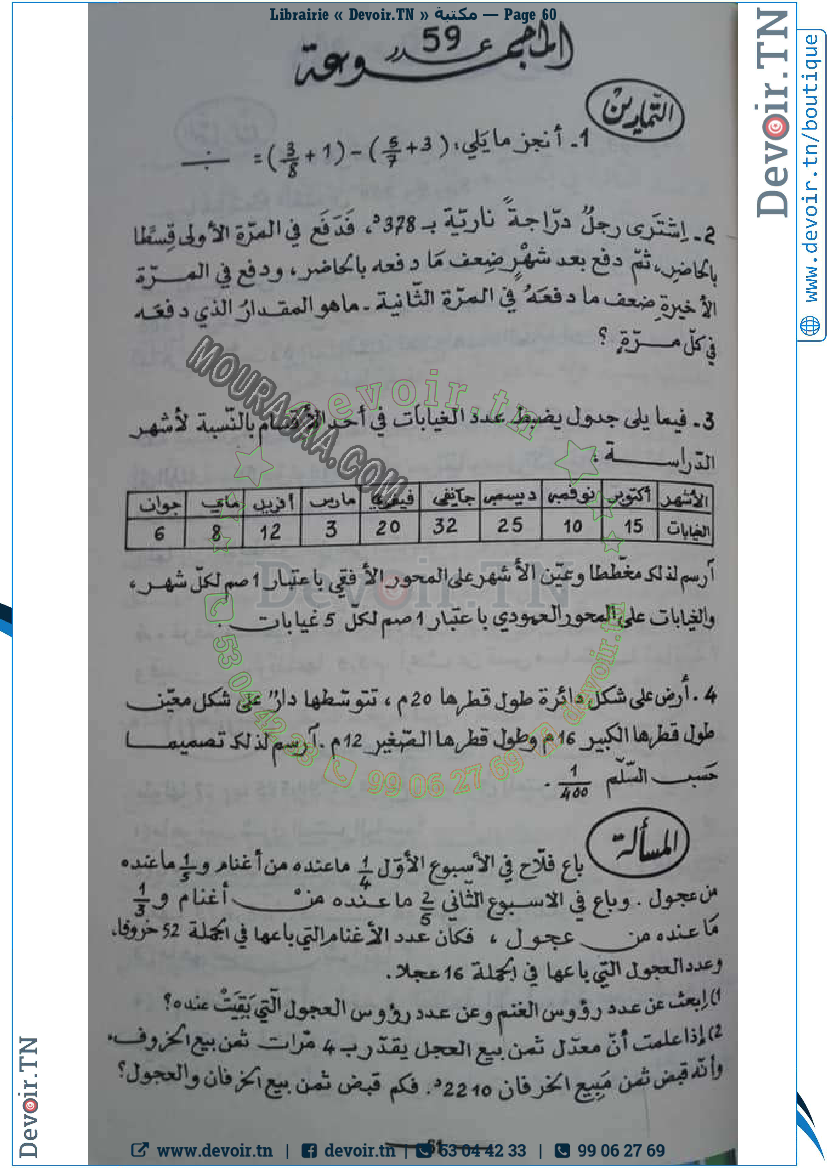 Librairie « Devoir.TN » مكتبة — Page 60
المجموعة عدد 59
التمارين
1ـ أنجز ما يلي: (3 + 5/7) − (1 + 3/8) =
2ـ اِشترى رجلٌ درّاجةً ناريّة بـ 378د، فَدَفَع في المرّة الأولى قِسطًا
بالحَاضِرِ، ثمّ دفع بعد شهْرٍ ضِعف مَا دفعه بالحَاضر، ودفع في المرّة
الأخيرةِ ضِعف ما دفعَهُ في المرّة الثّانية ـ ماهو المقدارُ الذي دفعَه
في كلّ مرّةٍ ؟
3ـ فيما يلي جدول يضبط عدد الغيابات في أحد الأقسَام بالنّسبة لأشهر
الدّراسة :
الأشهر أكتوبر نوفمبر ديسمبر جانفي فيفري مارس أفريل ماي جوان
الغيابات 15 10 25 32 20 3 12 8 6
أرسم لذلك مخّططا وعيّن الأشهر على المحور الأفقي باعتبار 1 صم لكلّ شهر،
والغيابات على المحور العمودي باعتبار 1 صم لكلّ 5 غيابات .
4 ـ أرض على شكل دائرة طول قطرها 20 م، تتوسّطها دارٌ على شكل معيّن
طول قطرها الكبير 16م وطول قطرها الصّغير 12م ـ أرسم لذلك تصميما
حَسبَ السّلّم 1/400 ـ
المسألة
باع فلّاح في الأسبوع الأوّل 1/4 ماعنده من أغنام و 1/5 ماعنده
من عجول . وباع في الاسبوع الثّاني 2/5 ما عنده من أغنام و 1/3
مَا عنده من عجول ، فكان عدد الأغنام التي باعها في الجملة 52 خروفا،
وعدد العجول التي باعها في الجملة 16 عجلا.
1) اِبحث عن عدد رؤوس الغنم وعن عدد رؤوس العجول الّتي بَقِيَتْ عنده؟
2) إذا علمت أنّ معدّل ثمن بيع العجل يقدّر بـ 4 مّرات ثمن بيع الخروف،
وأنّه قبض ثمن مَبِيع الخرفان 2210د. فكم قبض ثمن بيع الخرفان والعجول؟
61
MOURAJAA.COM
devoir.tn
Devoir.TN
53 04 42 33 99 06 27 69 devoir.tn
Devoir.TN
www.devoir.tn/boutique
Devoir.TN
www.devoir.tn | devoir.tn | 53 04 42 33 | 99 06 27 69